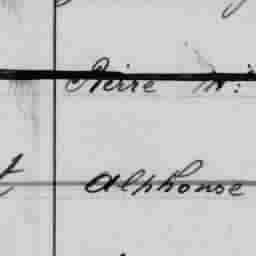 Pierre
Alphonse